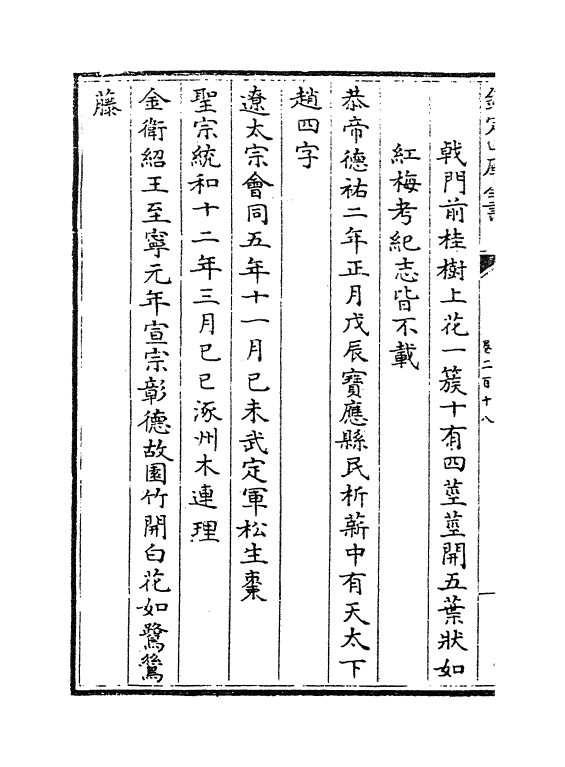 欽定四庫全書
卷二百十八
戟門前桂樹上花一簇十有四莖莖開五葉狀如
紅梅考紀志皆不載
恭帝德祐二年正月戊辰寶應縣民析薪中有天太下
趙四字
遼太宗會同五年十一月己未武定軍松生棗
聖宗統和十二年三月己巳涿州木連理
金衛紹王至寧元年宣宗彰德故園竹開白花如鷺鷥
藤